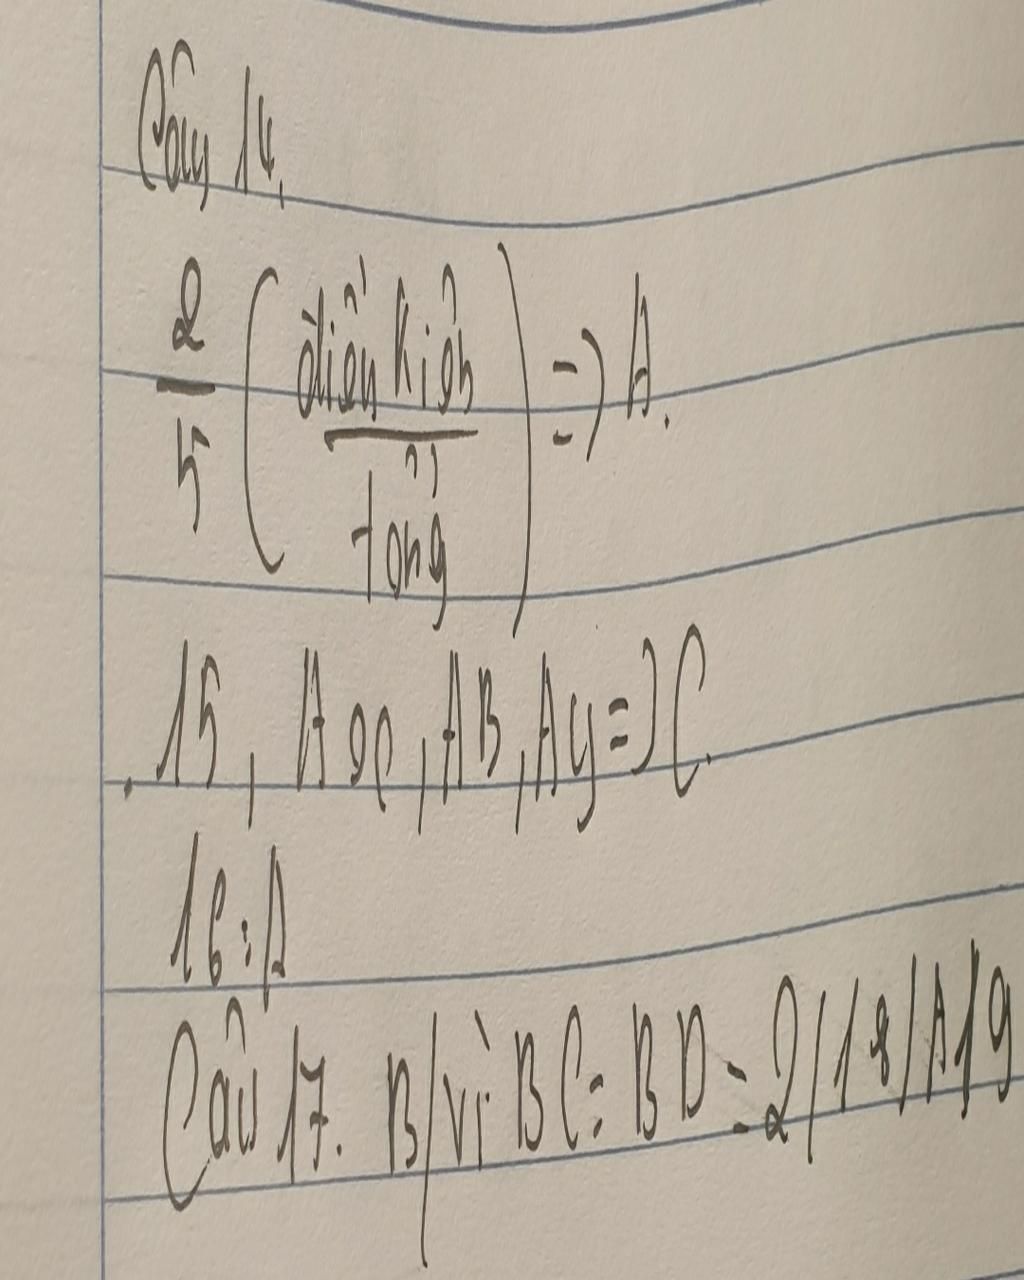 Câu 14.
2/5 (điều kiện/tổng) => A.
15, Ax, AB, Ay => C.
16: A
Câu 17. B/vì BC = BD = 2/18/A/19